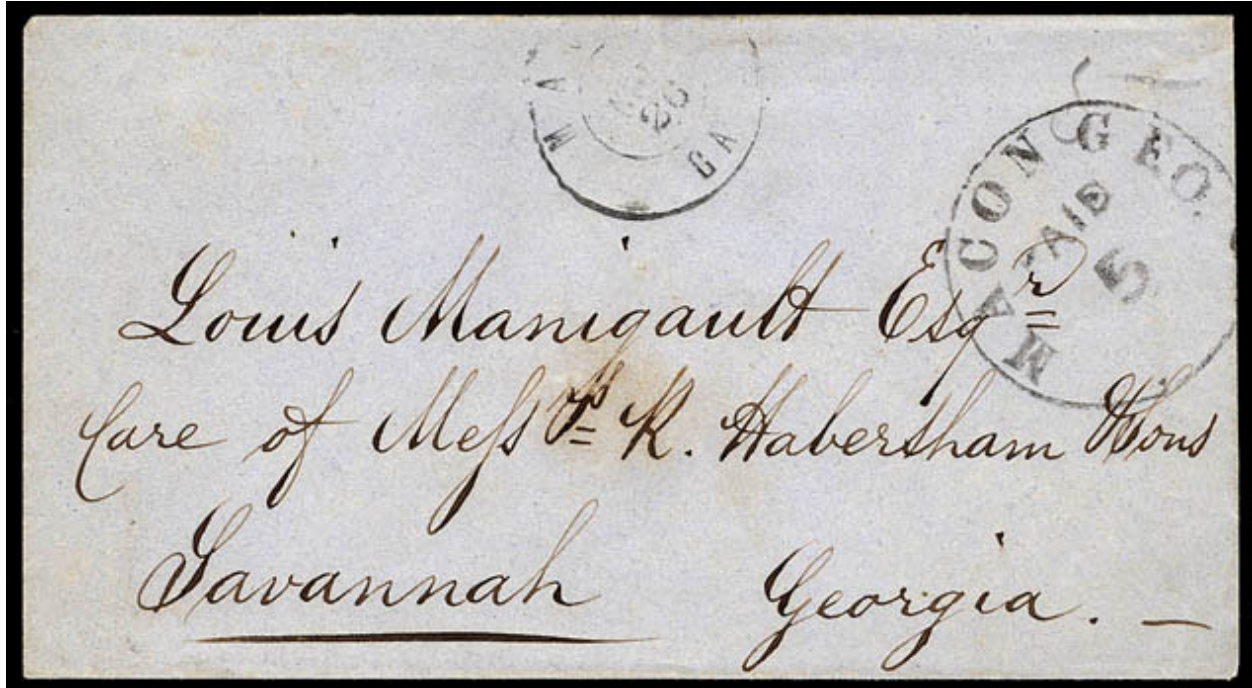 26
GA
MACON GEO.
PAID
5
Louis Manigault Esqr
Care of Messrs R. Habersham & Sons
Savannah Georgia. —